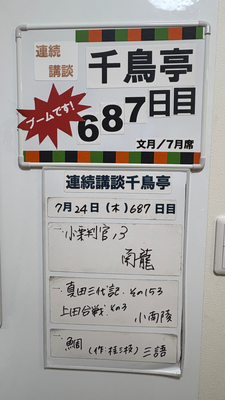 連続
講談
千鳥亭
ブームです!
687日目
文月/7月席
連続講談千鳥亭
7月24日(木)687日目
小栗判官,3
南龍
真田三代記.その153
上田合戦 その3
小南陵
鯛(作:桂三枝)三語